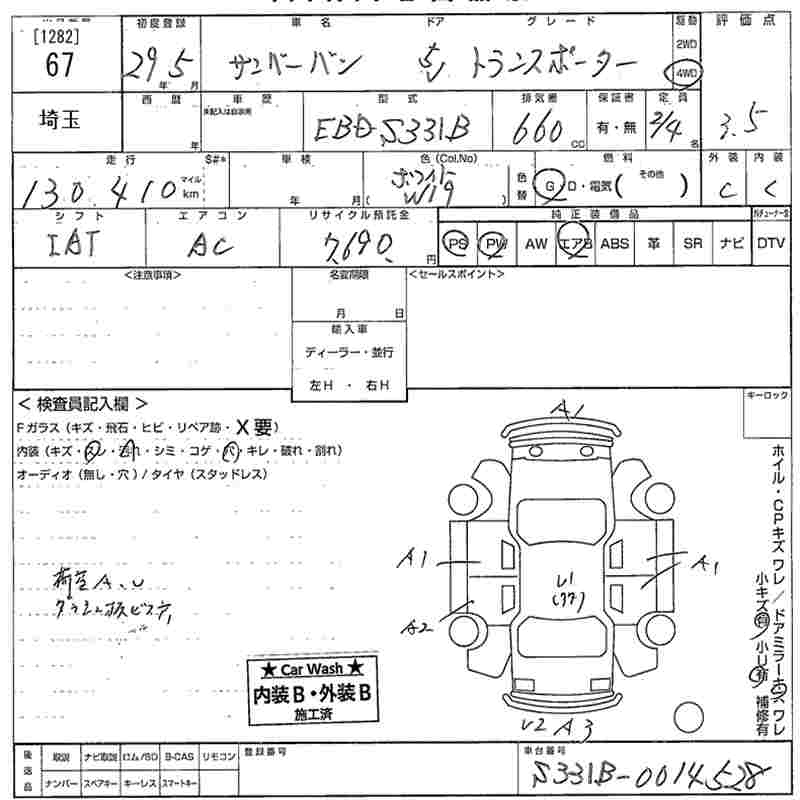 [1282]
67
初度登録
29年 5月
車名
サンバーバン
ドア
5
グレード
トランスポーター
駆動
2WD
4WD
評価点
3.5
埼玉
西暦
年
車歴
未記入は自家用
型式
EBD-S331B
排気量
660 CC
保証書
有・無
定員
2/4 名
走行
130,410
マイル
km
S#*
車検
年 月
色 (Col.No)
ホワイト
( W19 )
色替
燃料
G・D・電気( その他 )
外装
C
内装
C
シフト
IAT
エアコン
AC
リサイクル預託金
7,690 円
純正装備品
PS PW AW エアB ABS 革 SR ナビ
DTV
<注意事項>
名変期限
月 日
<セールスポイント>
輸入車
ディーラー・並行
左H ・ 右H
< 検査員記入欄 >
Fガラス (キズ・飛石・ヒビ・リペア跡・X要)
内装 (キズ・スレ・汚れ・シミ・コゲ・穴・キレ・破れ・割れ)
オーディオ (無し・穴) / タイヤ (スタッドレス)
荷室A、U
★ Car Wash ★
内装B・外装B
施工済
A1
A1
A2
A1
U1
U2 A3
キーロック
ホイル・CPキズ ワレ / ドアミラーキズ ワレ
小キズ有 小U有 補修有
後送品
取説 ナビ取説 ロム/SD B-CAS リモコン
ナンバー スペアキー キーレス スマートキー
登録番号
車台番号
S331B-0014528